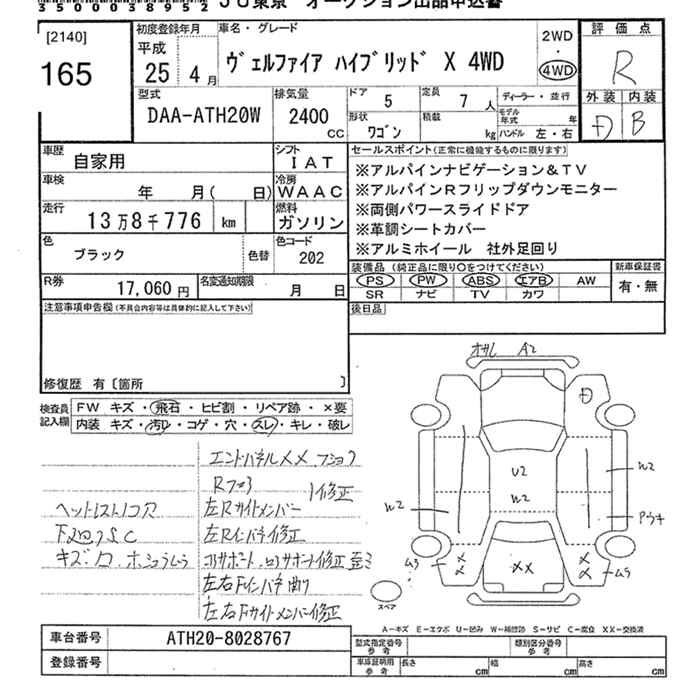 350003895２
ＪＵ東京 オークション出品申込書
[2140]
165
初度登録年月
平成
25 4 月
車名・グレード
ヴェルファイア ハイブリッド X 4WD
2WD
・
4WD
評価点
R
外装 内装
D B
型式
DAA-ATH20W
排気量
2400
CC
ドア 5
定員 7 人
形状 ワゴン
積載 kg
ディーラー・並行
モデル年式 年
ハンドル 左・右
車歴 自家用
車検 年 月( 日)
走行 13万8千776 km
色 ブラック 色替
シフト IAT
冷房 WAAC
燃料 ガソリン
色コード 202
R券 17,060 円
名変通知期限 月 日
セールスポイント(正常に機能するものに限ります)
※アルパインナビゲーション＆TV
※アルパインRフリップダウンモニター
※両側パワースライドドア
※革調シートカバー
※アルミホイール 社外足回り
装備品 (純正品に限り○をつけてください)
PS PW ABS エアB AW
SR ナビ TV カワ
新車保証書
有・無
後日品
注意事項申告欄(不具合内容等は具体的に記入して下さい)
修復歴 有〔箇所 〕
検査員記入欄
FW キズ・飛石・ヒビ割・リペア跡・×要
内装 キズ・汚レ・コゲ・穴・スレ・キレ・破レ
エンドパネルXX.フショク
Rフロア 修正
左Rサイドメンバー
左Rインパネ修正
左右Fインパネ曲り
左右Fサイドメンバー修正
A2
D
U2
W2
W2
W2
XX
XX
XX
スペア
A－キズ E－エクボ U－凹み W－補修跡 S－サビ C－腐食 XX－交換済
車台番号 ATH20-8028767
登録番号
型式指定番号 参考
類別区分番号 参考
車庫証明用 参考 長さ cm 幅 cm 高さ cm